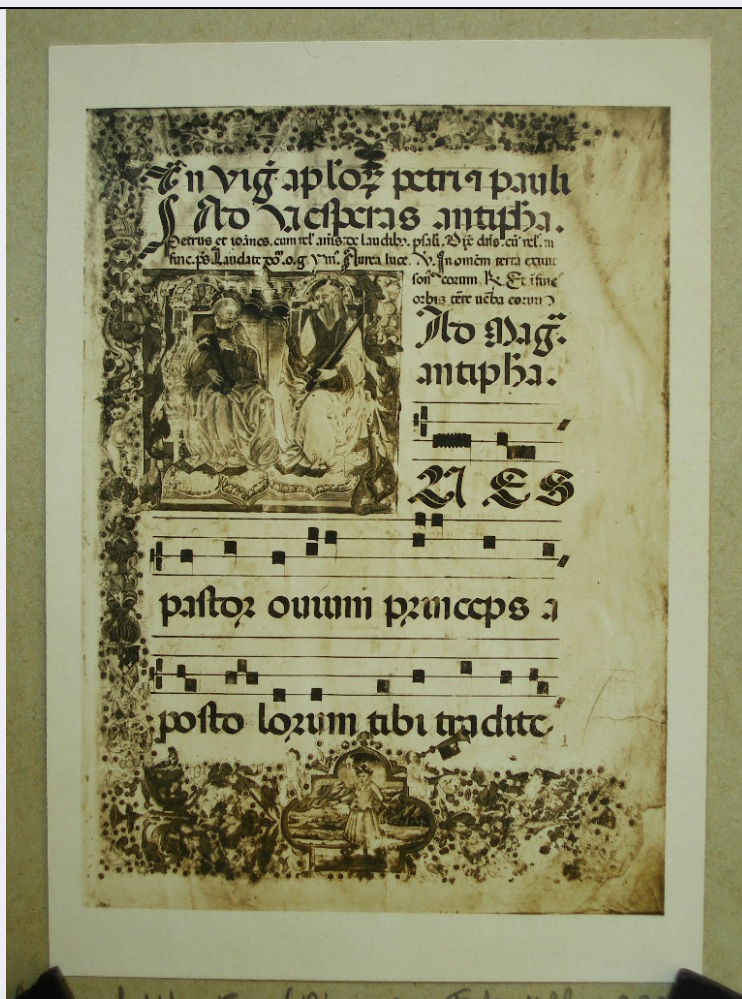 In vig̃ apl'oꝝ petri ⁊ pauli
Ad Vesperas antipha.
Petrus et ioānes. cum rel' añis de laudibꝫ. psal̃i. Dix̃ dñs. cū rel'. in
fine. ps̃. Laudate Aurea luce. V̇. In omēm terrā exiuit
son⁹ eorum. ℞. Et i fines
orbis terre ũba eorum
Ad Mag̃.
antipha.
U ES
pastor ouium princeps a
posto lorum tibi tradite